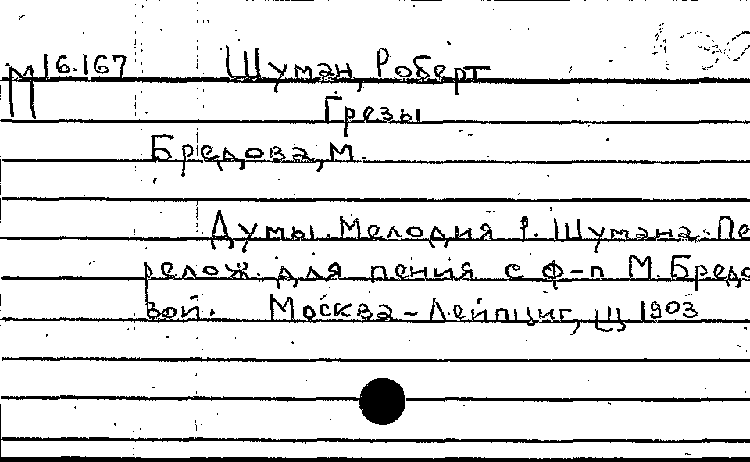 М 16.167 Шуман, Роберт
П Грезы
Бредова, М.
Думы. Мелодия Р. Шумана. Пе
релож. для пения с ф-п М. Бредо
вой. Москва - Лейпциг, Ц 1903